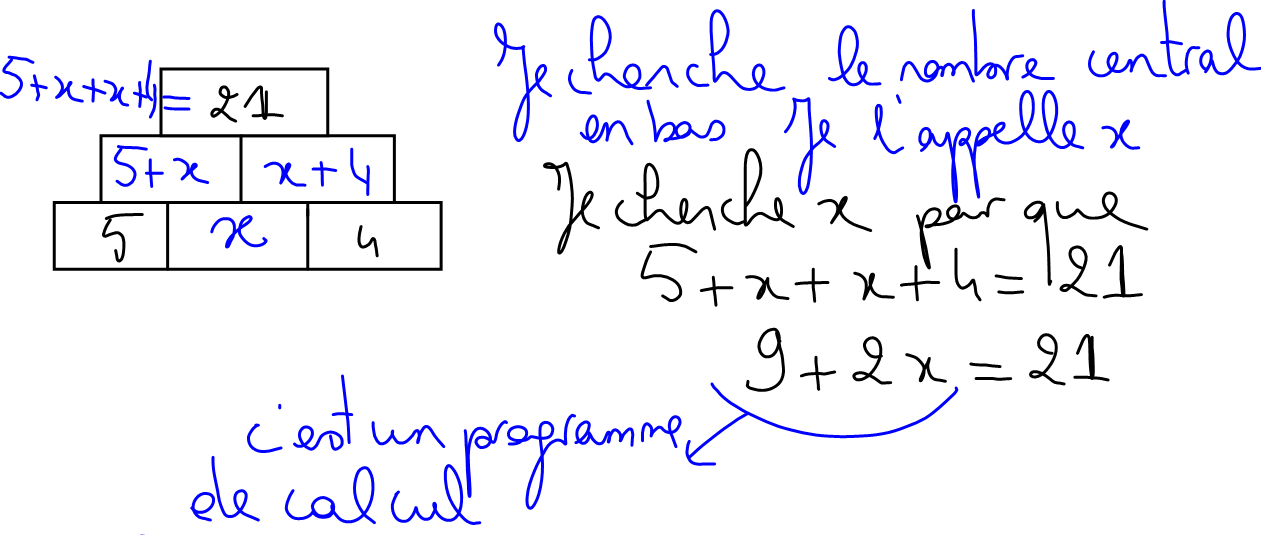 5+x+x+4 = 21
5+x x+4
5 x 4
Je cherche le nombre central
en bas Je l'appelle x
Je cherche x pour que
5+x+x+4=21
9+2x=21
c'est un programme
de calcul